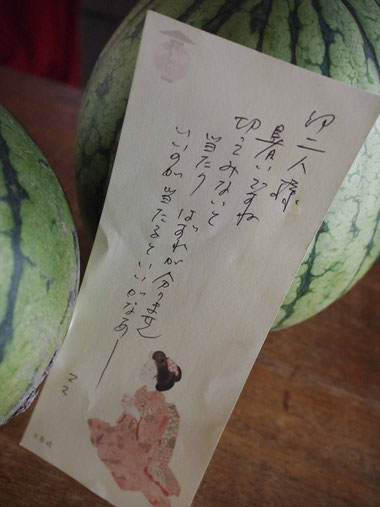 お二人様
暑いですね
切ってみないと
当たり はずれが分りません
いいのが当たるといいがなあー